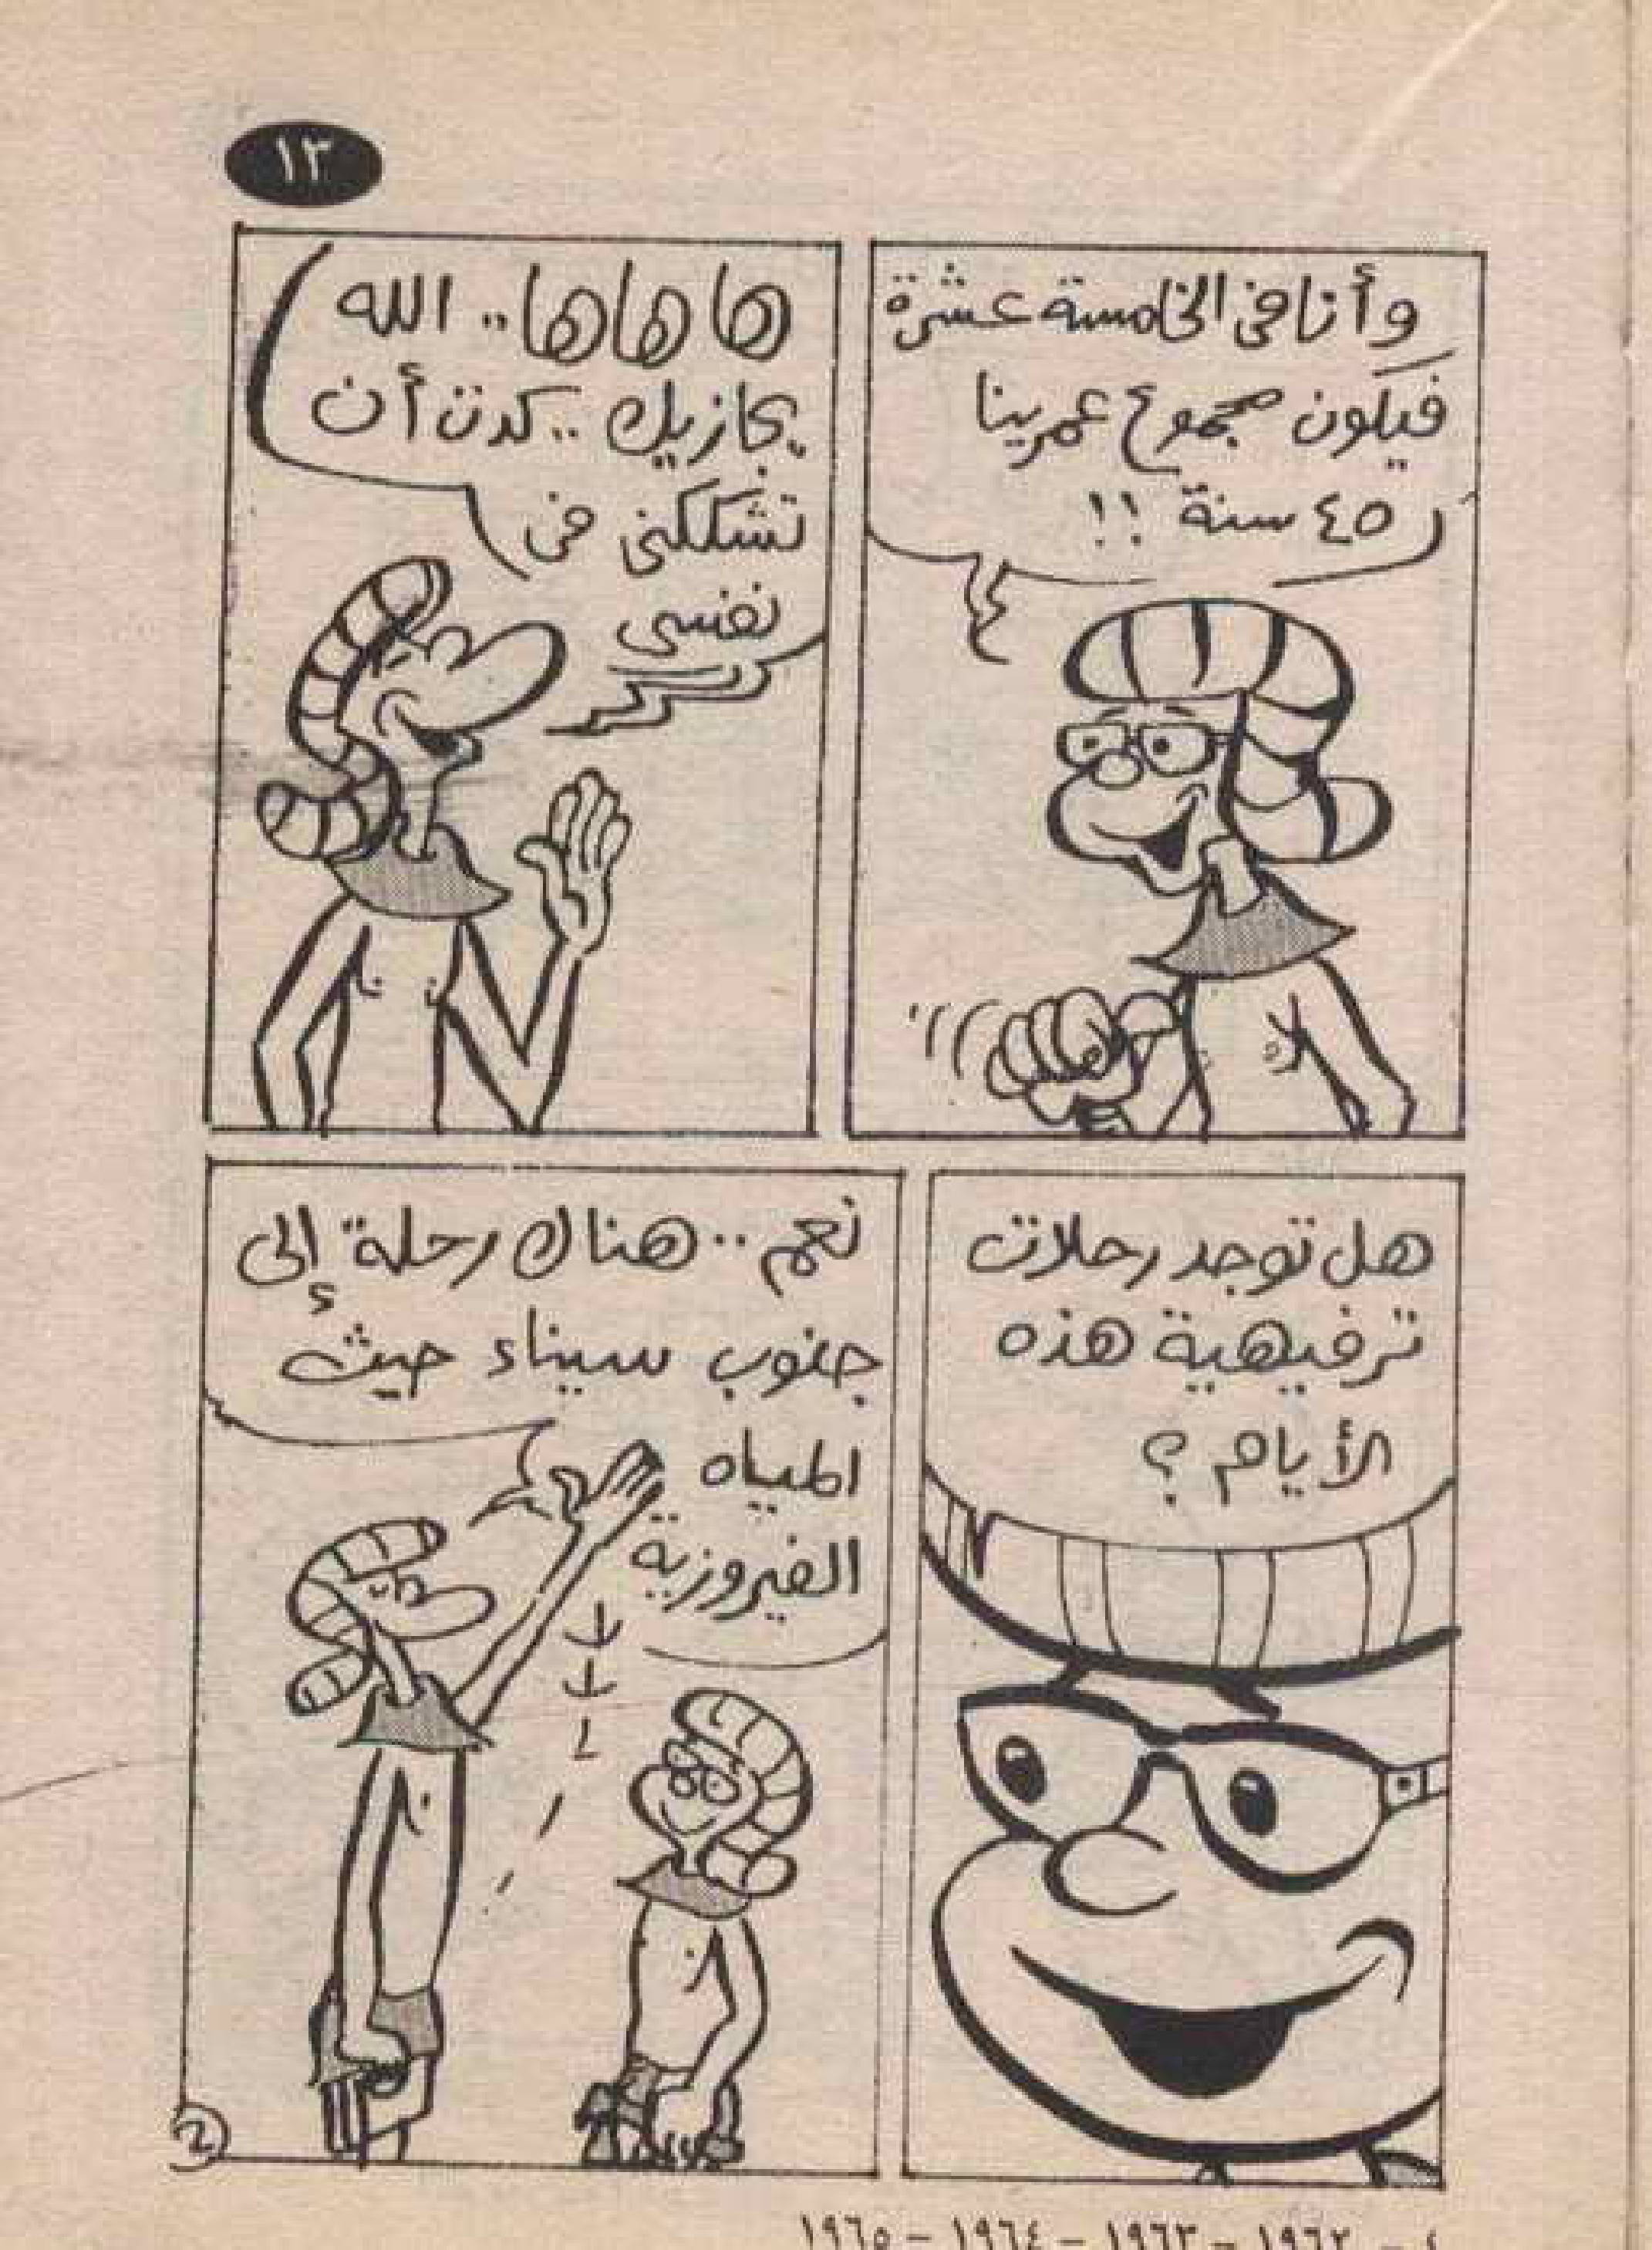 ١٣
وأنا فى الخامسة عشرة
فيكون مجموع عمرينا
٤٥ سنة !!
ها هاها .. الله
يجازيك .. كدت أن
تشككنى فى
نفسى
هل توجد رحلات
ترفيهية هذه
الأيام ؟
نعم .. هناك رحلة إلى
جنوب سيناء حيث
المياه
الفيروزية
2
١٩٦٢ – ١٩٦٣ – ١٩٦٤ – ١٩٦٥